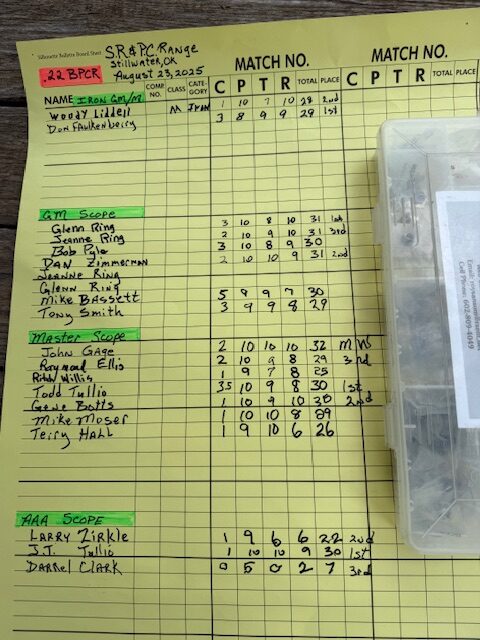 Silhouette Bullseye Board Sheet
SR&PC Range
Stillwater, OK
August 23, 2025
.22 BPCR
MATCH NO. MATCH NO.
NAME COMP. NO. CLASS CATEGORY C P T R TOTAL PLACE C P T R TOTAL PLACE
Iron GM/M
Woody Liddell AA 1 10 7 10 28 2nd
Don Faulkenberry 3 8 9 9 29 1st
GM Scope
Glenn Ring 3 10 8 10 31 1st
Jeanne Ring 2 10 9 10 31 3rd
Bob Pyle 3 10 8 9 30
Dan Zimmerman 2 10 10 9 31 2nd
Jeanne Ring
Glenn Ring
Mike Bassett 5 9 9 7 30
Tony Smith 3 9 9 8 29
Master Scope
John Gage 2 10 10 10 32
Raymond Ellis 2 10 9 8 29 3rd
Willis 1 9 7 8 25
Todd Tullio 35 10 9 8 30 1st
Gene Botts 1 10 9 10 30 2nd
Mike Moser 1 10 10 8 29
Terry Hall 1 9 10 6 26
AAA Scope
Larry Zirkle 1 9 6 6 22 2nd
J.T. Tullio 1 10 10 9 30 1st
Darrel Clark 0 5 0 2 7 3rd
Email:
Cell Phone: 602-809-4049